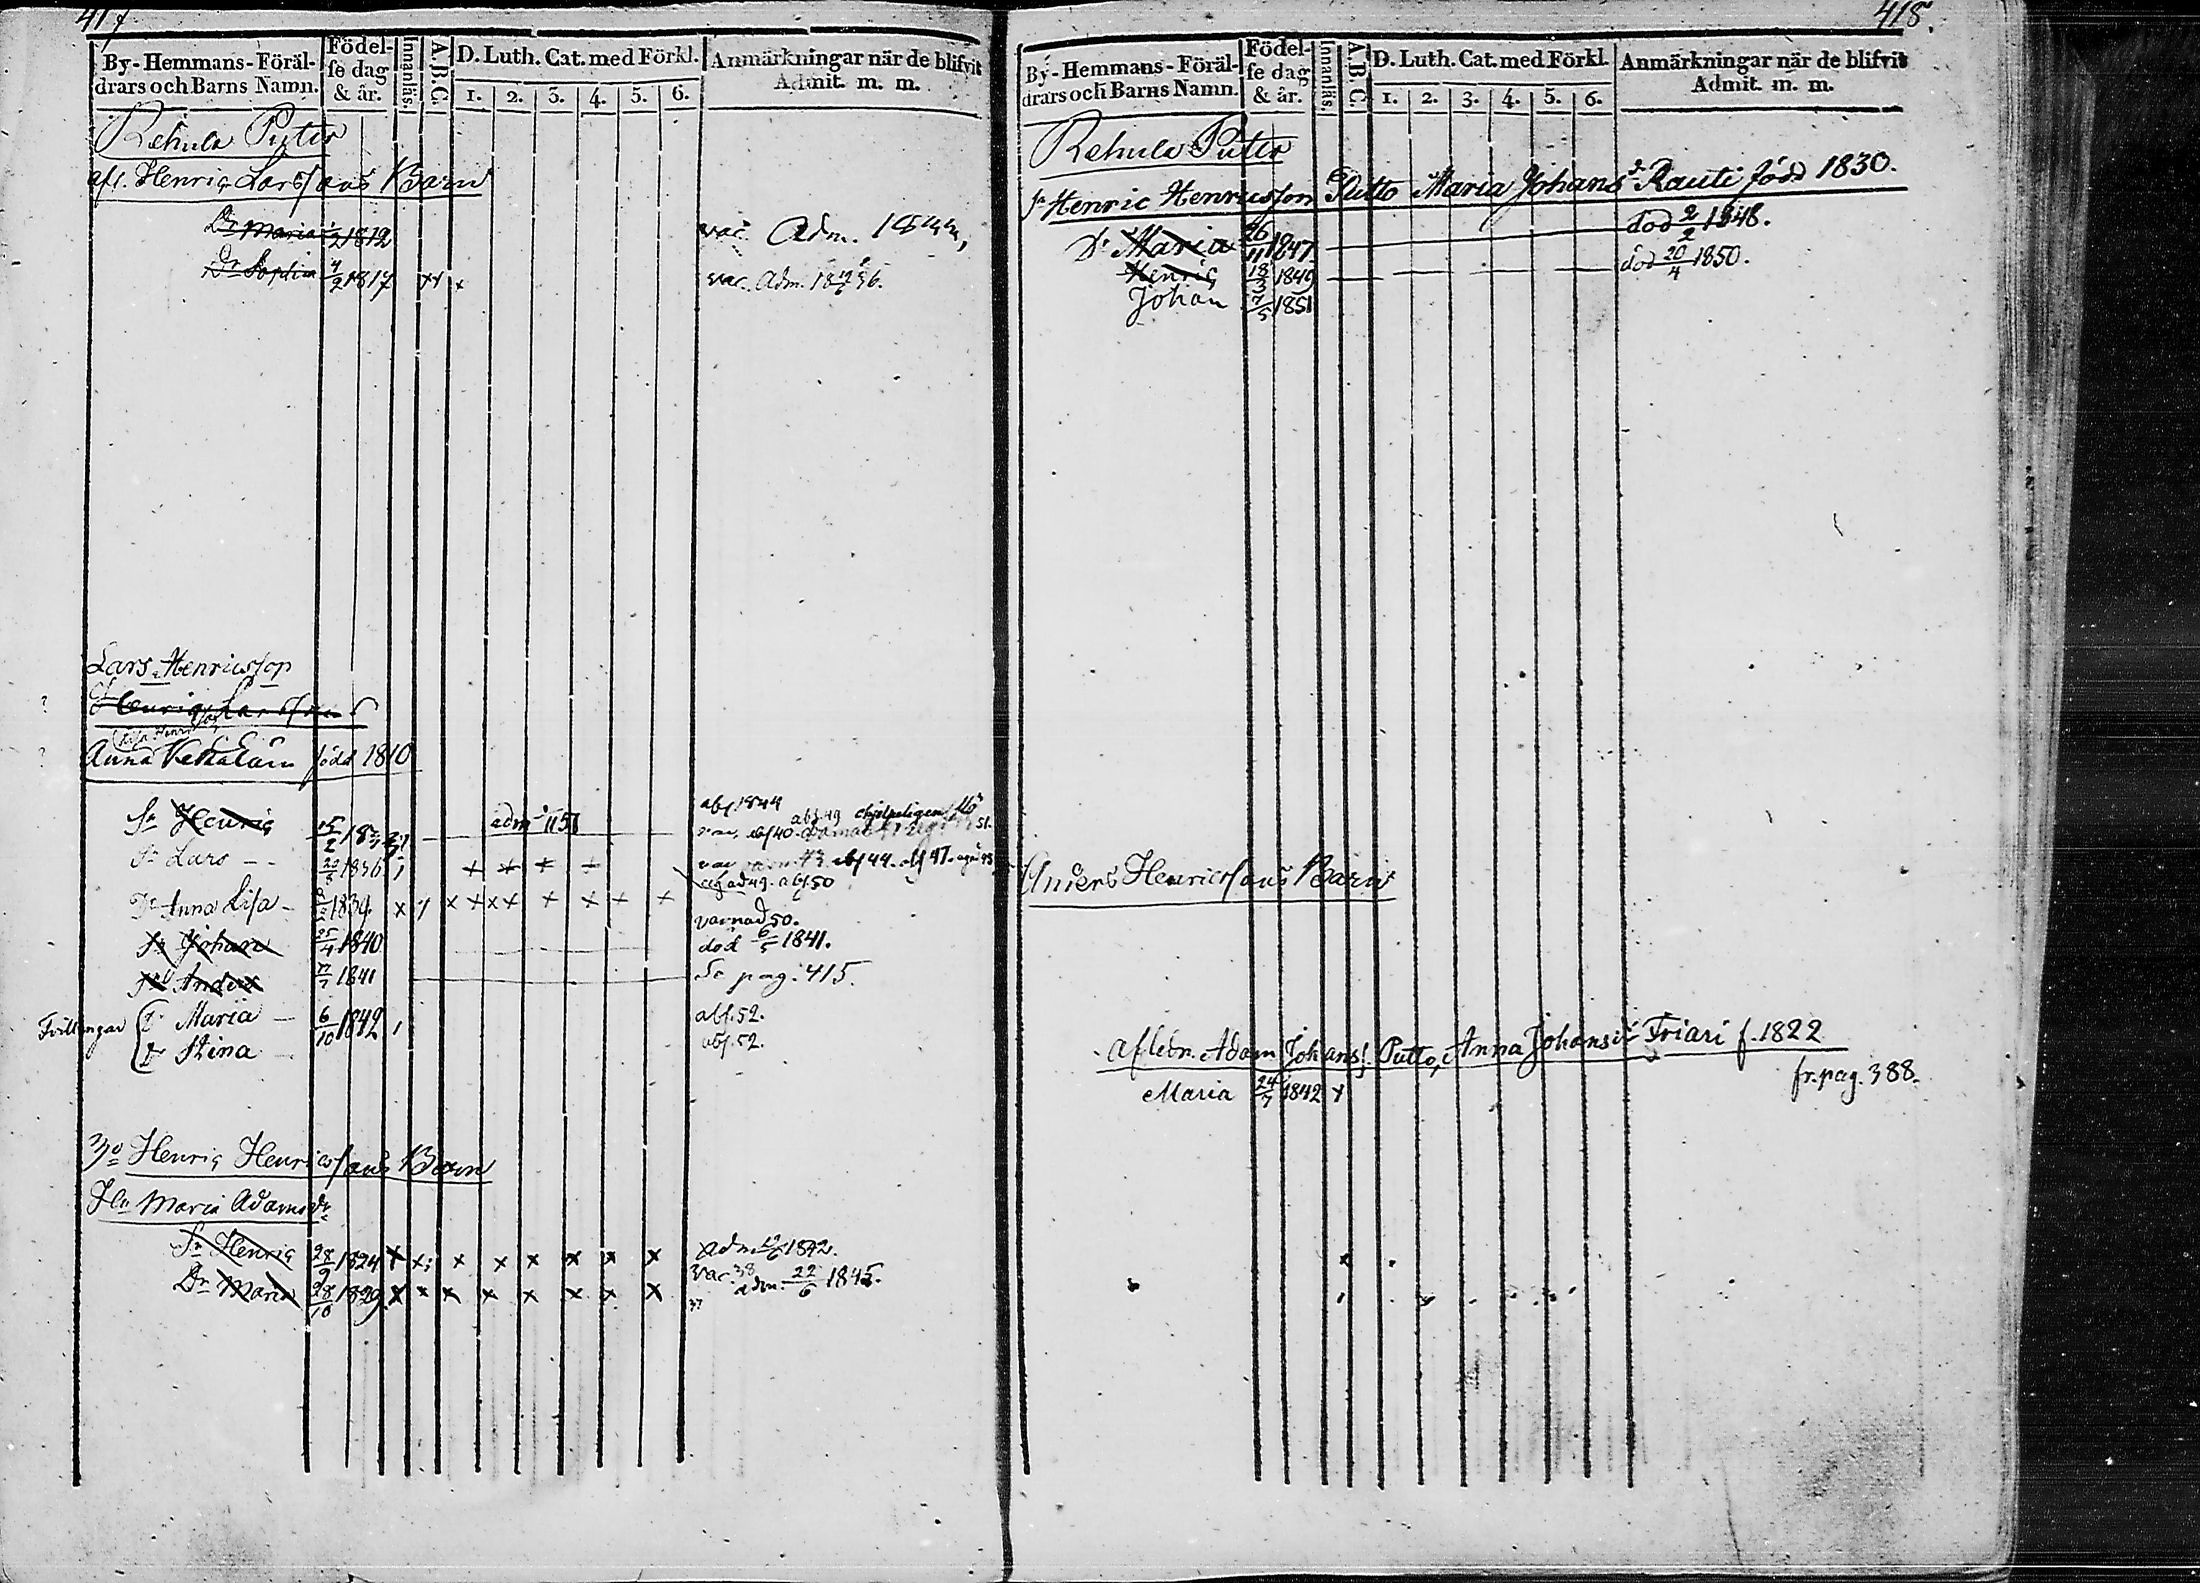 417
By-Hemmans-Föräl-
drars och Barns Namn.
Födel-
se dag
& år.
Innanläs.
A.B.C.
D. Luth. Cat. med Förkl.
1. 2. 3. 4. 5. 6.
Anmärkningar när de blifvit
Admit. m. m.
Rehula Putto
afl. Henric Larssons Barn
Dr Maria 1812 vac. Adm.
Dr Sophia 4/2 1817 x x x vac. Adm.
Lars Henricsson
Henric Larsson
Anna född 1810
Sn Henric 15/2 adm 1151 abs 1844
Sn Lars 1836 x x x x
Dr Anna Lisa 1839. x x x x x x x x x x varnad 50.
Sn Johan 25/4 1840 död 6/5 1841.
Anders 1841 Se pag. 415.
Tvillingar
Dr Maria 6/10 1842 abs. 52.
Dr Stina abs. 52.
3o Henric Henricssons Barn
Hu Maria Adamsdr
Sn Henric 28/9 1824 x x x x x x x x Adm. 1842.
Dr Maria 28/10 1829 x x x x x x x x vac. 38 adm. 22/6 1845.
418.
By-Hemmans-Föräl-
drars och Barns Namn.
Födel-
se dag
& år.
Innanläs.
A.B.C.
D. Luth. Cat. med Förkl.
1. 2. 3. 4. 5. 6.
Anmärkningar när de blifvit
Admit. m. m.
Rehula Putto
Sn Henric Henricsson Putto Maria Johansdr Rauti född 1830.
Dr Maria 26/11 1847 död 2/2 1848.
Henric 18/3 1849 död 20/4 1850.
Johan 7/5 1851
Anders Henricssons Barn
Afledn. Adam Johanss. Putto, Anna Johansdr Friari f. 1822
fr. pag. 388.
Maria 24/7 1842 x